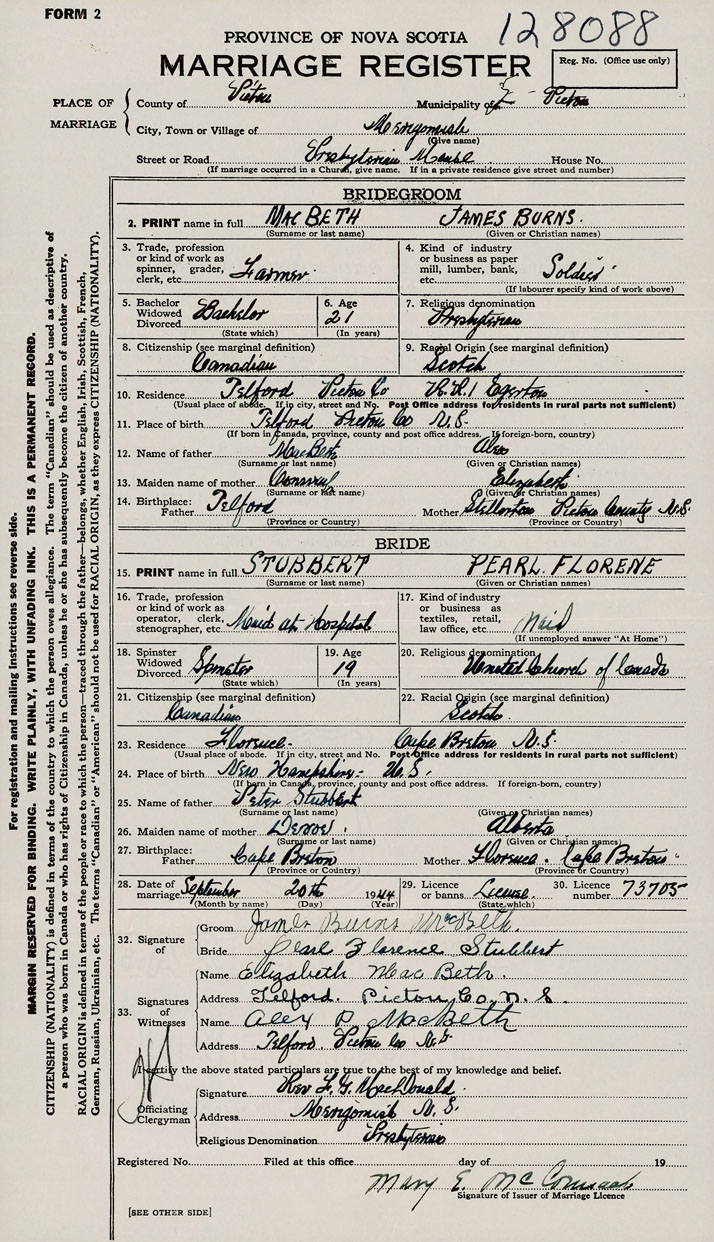 FORM 2
128088
PROVINCE OF NOVA SCOTIA
MARRIAGE REGISTER
Reg. No. (Office use only)
PLACE OF MARRIAGE
County of Pictou Municipality of E Pictou
City, Town or Village of Merigomish
(Give name)
Street or Road Presbyterian Manse House No.
(If marriage occurred in a Church, give name. If in a private residence give street and number)
BRIDEGROOM
2. PRINT name in full MACBETH JAMES BURNS.
(Surname or last name) (Given or Christian names)
3. Trade, profession or kind of work as spinner, grader, clerk, etc. Farmer
4. Kind of industry or business as paper mill, lumber, bank, etc. Soldier
(If labourer specify kind of work above)
5. Bachelor Widowed Divorced Bachelor
(State which)
6. Age 21
(In years)
7. Religious denomination
Presbyterian
8. Citizenship (see marginal definition)
Canadian
9. Racial Origin (see marginal definition)
Scotch
10. Residence Telford Pictou Co R.R.1 Egerton
(Usual place of abode. If in city, street and No. Post Office address for residents in rural parts not sufficient)
11. Place of birth Telford Pictou Co N.S.
(If born in Canada, province, county and post office address. If foreign-born, country)
12. Name of father MacBeth Alex
(Surname or last name) (Given or Christian names)
13. Maiden name of mother Elizabeth
(Surname or last name) (Given or Christian names)
14. Birthplace: Father Telford Mother Stellarton Pictou County N.S.
(Province or Country) (Province or Country)
BRIDE
15. PRINT name in full STUBBERT PEARL. FLORENE
(Surname or last name) (Given or Christian names)
16. Trade, profession or kind of work as operator, clerk, stenographer, etc. Maid at Hospital
17. Kind of industry or business as textiles, retail, law office, etc. Maid
(If unemployed answer "At Home")
18. Spinster Widowed Divorced Spinster
(State which)
19. Age 19
(In years)
20. Religious denomination
United Church of Canada
21. Citizenship (see marginal definition)
Canadian
22. Racial Origin (see marginal definition)
Scotch.
23. Residence Florence- Cape Breton N.S
(Usual place of abode. If in city, street and No. Post Office address for residents in rural parts not sufficient)
24. Place of birth New Hampshire- U.S.
(If born in Canada, province, county and post office address. If foreign-born, country)
25. Name of father Peter Stubbert
(Surname or last name) (Given or Christian names)
26. Maiden name of mother Alberta
(Surname or last name) (Given or Christian names)
27. Birthplace: Father Cape Breton Mother Florence. Cape Breton
(Province or Country) (Province or Country)
28. Date of marriage September 20th 1944
(Month by name) (Day) (Year)
29. Licence or banns. License.
(State which)
30. Licence number 73705
32. Signature of
Groom James Burns McBeth.
Bride Pearl Florence Stubbert
33. Signatures of Witnesses
Name Elizabeth MacBeth.
Address Telford. Pictou, Co. N. S.
Name Alex D MacBeth
Address Telford Pictou Co N.S.
I certify the above stated particulars are true to the best of my knowledge and belief.
Officiating Clergyman
Signature Rev L. G. MacDonald.
Address Merigomish N. S.
Religious Denomination Presbyterian
Registered No. Filed at this office day of 19
Mary E. McCormack
Signature of Issuer of Marriage Licence
[SEE OTHER SIDE]
For registration and mailing instructions see reverse side.
MARGIN RESERVED FOR BINDING. WRITE PLAINLY, WITH UNFADING INK. THIS IS A PERMANENT RECORD.
CITIZENSHIP (NATIONALITY) is defined in terms of the country to which the person owes allegiance. The term "Canadian" should be used as descriptive of
a person who was born in Canada or who has rights of Citizenship in Canada, unless he or she has subsequently become the citizen of another country.
RACIAL ORIGIN is defined in terms of the people or race to which the person—traced through the father—belongs, whether English, Irish, Scottish, French,
German, Russian, Ukrainian, etc. The terms "Canadian" or "American" should not be used for RACIAL ORIGIN, as they express CITIZENSHIP (NATIONALITY).